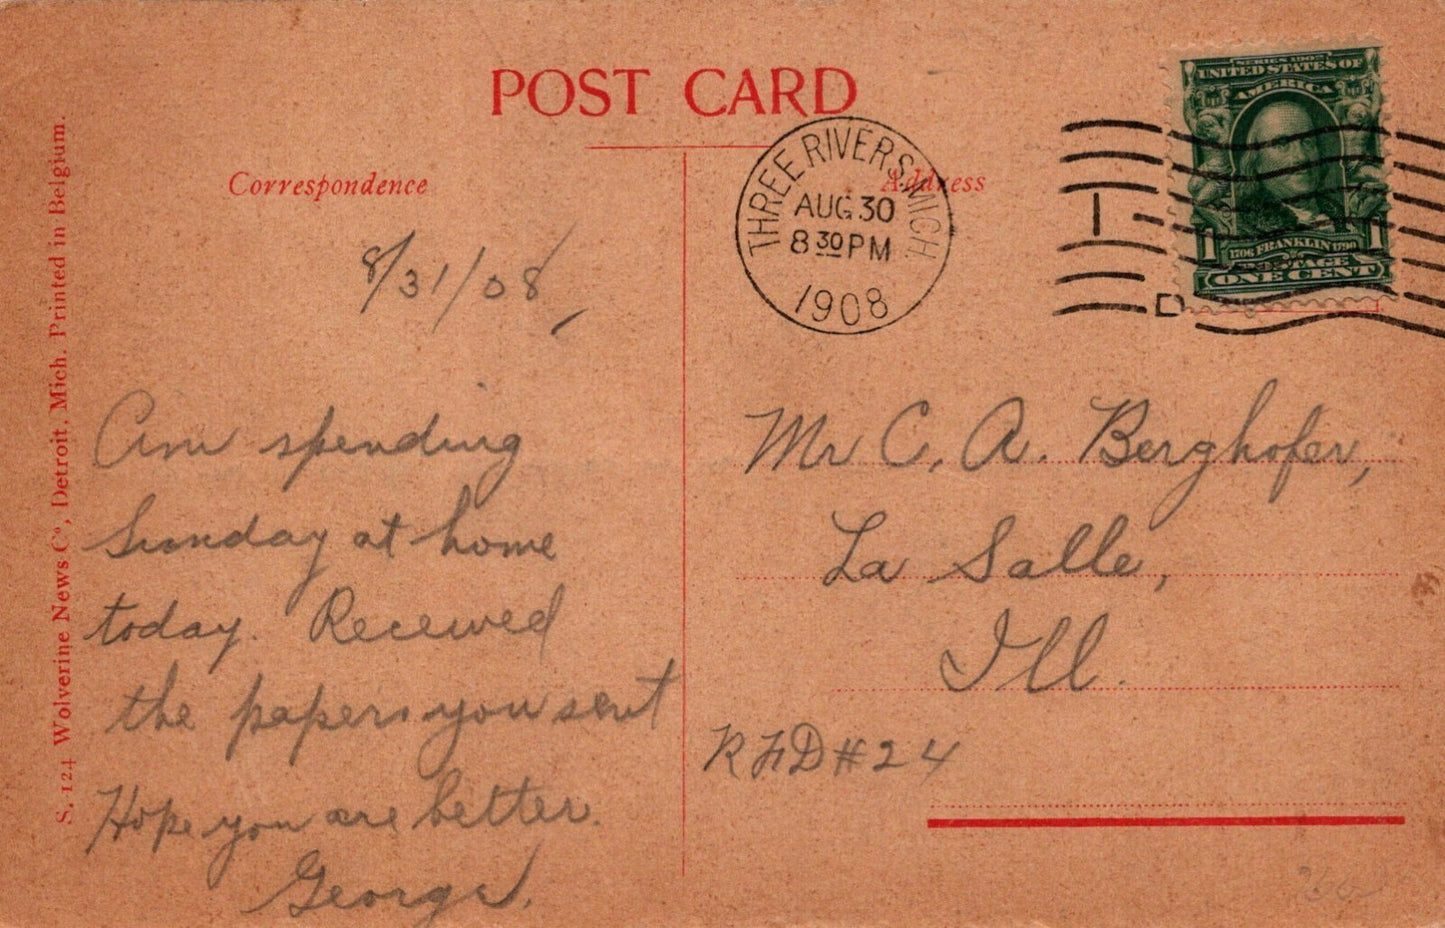 POST CARD
Correspondence
Address
S. 124 Wolverine News Cº, Detroit, Mich. Printed in Belgium.
THREE RIVERS, MICH.
AUG 30
8 30 PM
1908
SERIES 1902
UNITED STATES OF
AMERICA
1 1
1706 FRANKLIN 1790
POSTAGE
ONE CENT
D
8/31/08
Am spending
Sunday at home
today. Received
the papers you sent
Hope you are better.
George.
Mr C. A. Berghofer,
La Salle,
Ill.
RFD#24